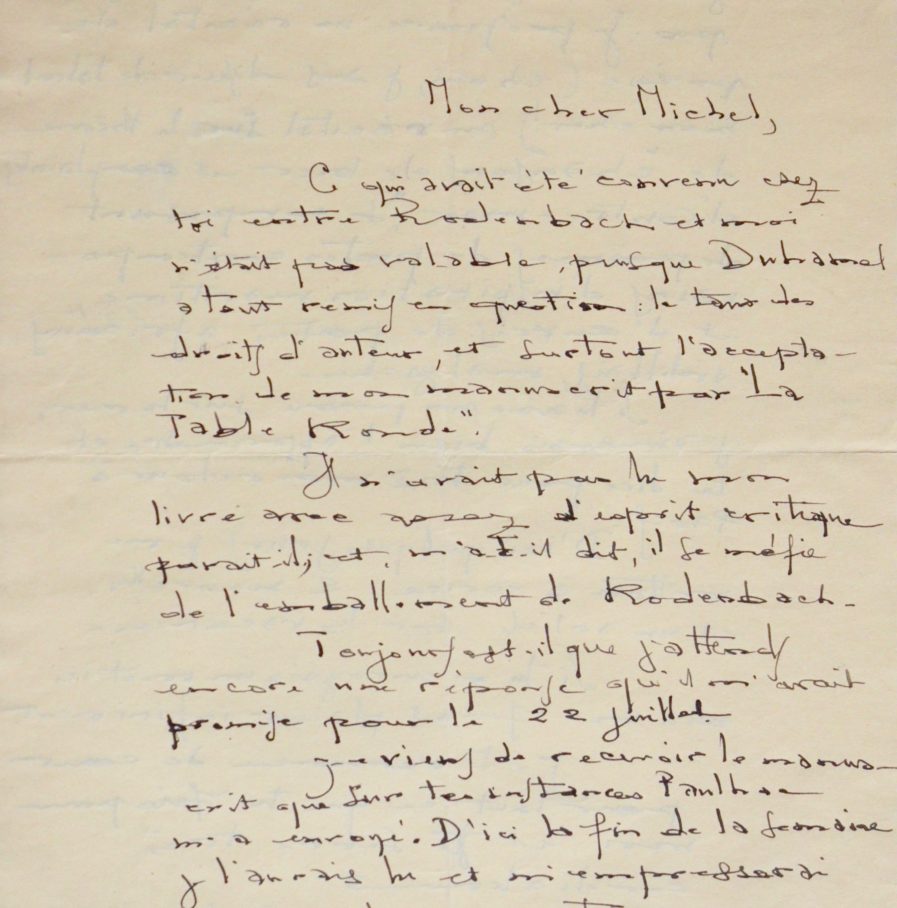 Mon cher Michel,
C qui avait été convenu chez
toi entre Rodenbach et moi
n'était pas valable, puisque Duhamel
a tout remis en question : le taux des
droits d'auteur, et surtout l'accepta-
tion de mon manuscrit par "La
Table Ronde".
Il n'avait pas lu mon
livre avec assez d'esprit critique
parait-il; et, m'a-t-il dit, il se méfie
de l'emballement de Rodenbach.
Toujours est-il que j'attends
encore une réponse qu'il m'avait
promise pour le 22 juillet.
Je viens de recevoir le manus-
crit que sur tes instances Paulhan
m'a envoyé. D'ici la fin de la semaine
j l'aurais lu et m'empresserai